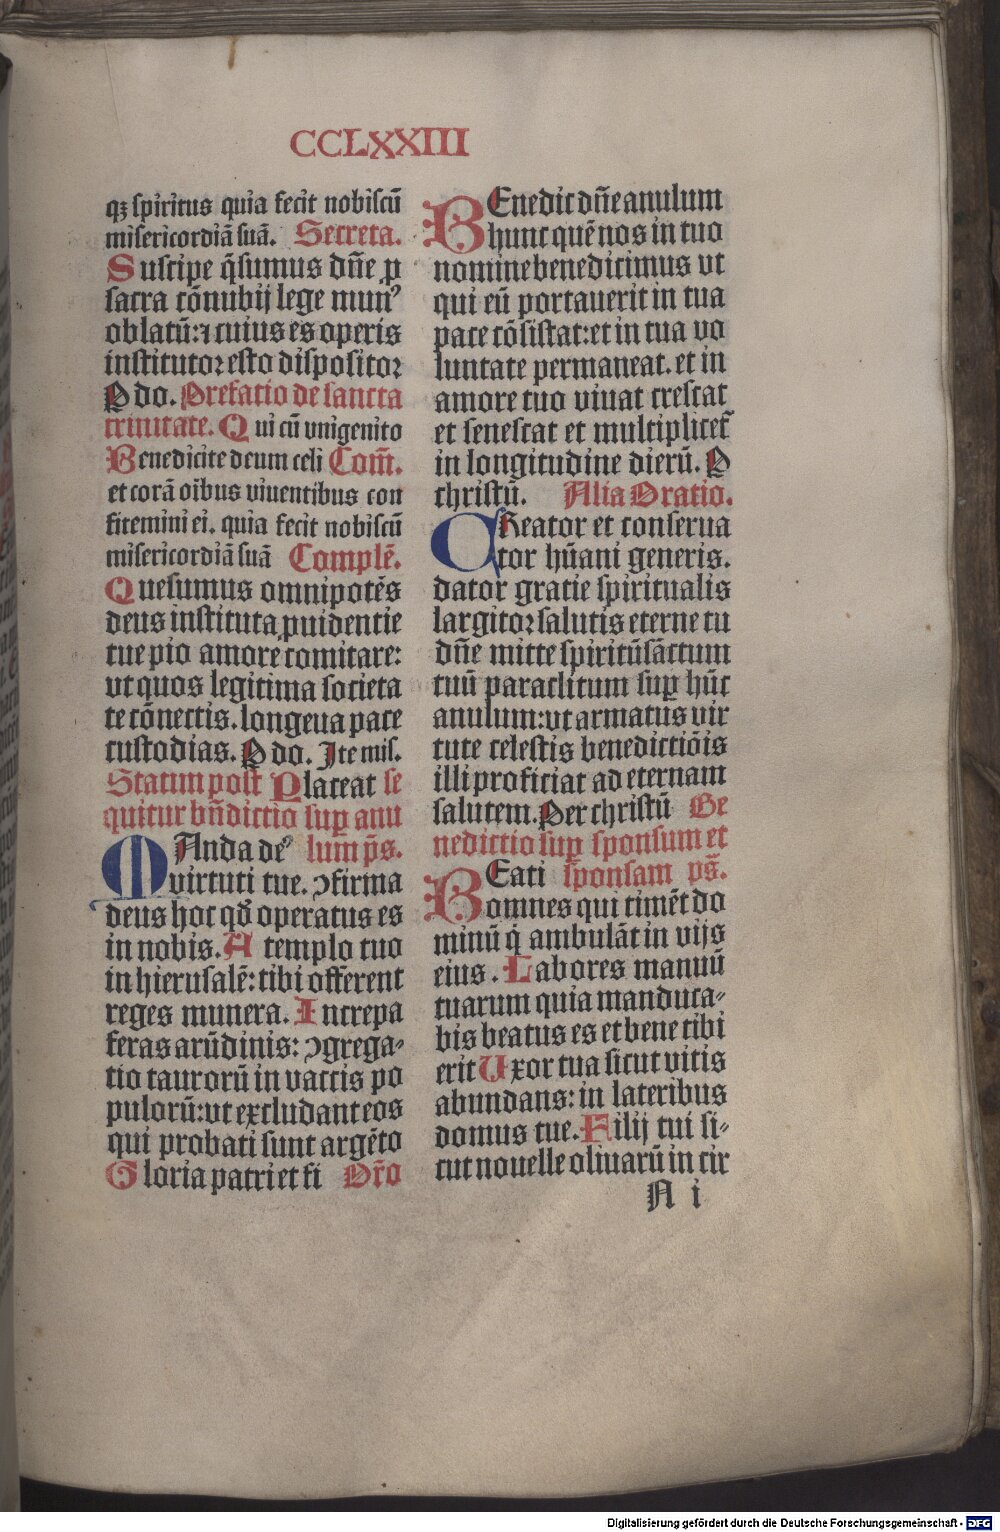 CCLXXIII
qꝫ spiritus quia fecit nobiscū
misericordiā suā. Secreta.
Suscipe q̄sumus dn̄e ꝓ
sacra cōnubij lege mun⁹
oblatū: ⁊ cuius es operis
institutor esto dispositor
P do. Prefatio de sancta
trinitate. Qui cū vnigenito
Benedicite deum celi Com̄.
et corā oībus viuentibus con
fitemini ei. quia fecit nobiscū
misericordiā suā Complē.
Quesumus omnipotēs
deus instituta ꝓuidentie
tue pio amore comitare:
vt quos legitima societa
te cōnectis. longeua pace
custodias. P do. Ite mis.
Statim post Placeat se
quitur bn̄dictio suꝑ anu
MAnda de⁹ lum ps̄.
virtuti tue. ꝯfirma
deus hoc qd̄ operatus es
in nobis. A templo tuo
in hierusalē: tibi offerent
reges munera. Increpa
feras arūdinis: ꝯgrega⸗
tio taurorū in vaccis po
pulorū: vt excludant eos
qui probati sunt argēto
Gloria patri et fi Or̄o
BEnedic dn̄e anulum
hunc quē nos in tuo
nomine benedicimus vt
qui eū portauerit in tua
pace cōsistat: et in tua vo
luntate permaneat. et in
amore tuo viuat crescat
et senescat et multiplicet᷑
in longitudine dierū. P
christū. Alia Oratio.
CReator et conserua
tor hūani generis.
dator gratie spiritualis
largitor salutis eterne tu
dn̄e mitte spiritū sāctum
tuū paraclitum suꝑ hūc
anulum: vt armatus vir
tute celestis benedictiōis
illi proficiat ad eternam
salutem. Per christū Be
nedictio suꝑ sponsum et
BEati sponsam ps̄.
omnes qui timēt do
minū q̇ ambulāt in vijs
eius. Labores manuū
tuarum quia manduca⸗
bis beatus es et bene tibi
erit Uxor tua sicut vitis
abundans: in lateribus
domus tue. Filij tui si⸗
cut nouelle oliuarū in cir
N i
Digitalisierung gefördert durch die Deutsche Forschungsgemeinschaft - DFG